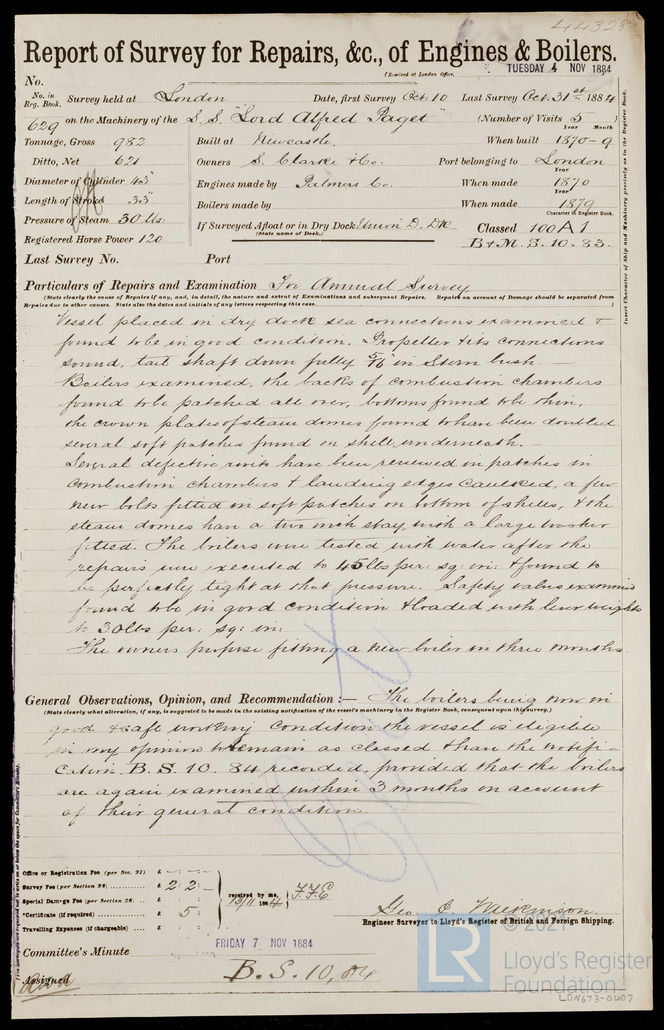 44328
Report of Survey for Repairs, &c., of Engines & Boilers.
(Received at London Office, TUESDAY 4 NOV 1884
No.
No. in Reg. Book. Survey held at London Date, first Survey Oct. 10 Last Survey Oct. 31st 1884
629 on the Machinery of the S.S. "Lord Alfred Paget" (Number of Visits 5)
Year Month
Tonnage, Gross 982 Built at Newcastle. When built 1870-9
Ditto, Net 621 Owners S. Clarke & Co. Port belonging to London
Year
Diameter of Cylinder 43" Engines made by Palmers Co. When made 1870
Year
Length of Stroke 33" Boilers made by When made 1879
Character in Register Book.
Pressure of Steam 30 lbs. If Surveyed Afloat or in Dry Dock Union D. Dk. Classed 100A1
(State name of Dock.)
Registered Horse Power 120 B&M. 3.10.83.
Last Survey No. Port
Particulars of Repairs and Examination For Annual Survey
(State clearly the cause of Repairs if any, and, in detail, the nature and extent of Examinations and subsequent Repairs. Repairs on account of Damage should be separated from
Repairs due to other causes. State also the dates and initials of any letters respecting this case.)
Vessel placed in dry dock sea connections examined &
found to be in good condition. Propeller & its connections
sound, tail shaft down fully 5/16 in Stern bush.
Boilers examined, the backs of combustion chambers
found to be patched all over, bottoms found to be thin,
the crown plates of steam domes found to have been doubled
several soft patches found on shell, underneath.
Several defective rivits have been renewed in patches in
combustion chambers & landing edges caulked, a few
new bolts fitted in soft patches on bottom of shells, & the
steam domes have a two inch stay, with a large washer
fitted. The boilers were tested with water after the
repairs were executed to 45lbs per: sq: in: & found to
be perfectly tight at that pressure. Safety valves examined
found to be in good condition & loaded with lever weights
to 30lbs per: sq: in:
The owners propose fitting a new boiler in three months.
General Observations, Opinion, and Recommendation :— The boilers being now in
(State clearly what alteration, if any, is suggested to be made in the existing notification of the vessel's machinery in the Register Book, consequent upon this survey.)
good & safe working condition the vessel is eligible
in my opinion to remain as classed & have the notifi-
cation B.S. 10. 84 recorded, provided that the boilers
are again examined within 3 months on account
of their general condition.
Office or Registration Fee (per Sec. 27) £ : :
Survey Fee (per Section 28) £ 2 : 2 :
Special Damage Fee (per Section 28) £ : :
*Certificate (if required) £ : 5 :
Travelling Expenses (if chargeable) £ : :
received by me,
1884
Geo. C. Mackinson.
Engineer Surveyor to Lloyd's Register of British and Foreign Shipping.
Committee's Minute FRIDAY 7 NOV 1884
Assigned B.S. 10, 84
Insert Character of Ship and Machinery precisely as in the Register Book.
© 2021
LR
Lloyd's Register
Foundation
LON673-0407